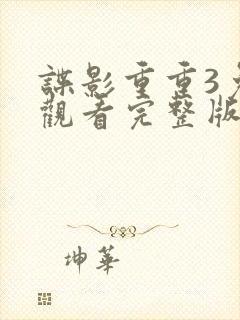 諜影重重3
觀看完整版
坤華